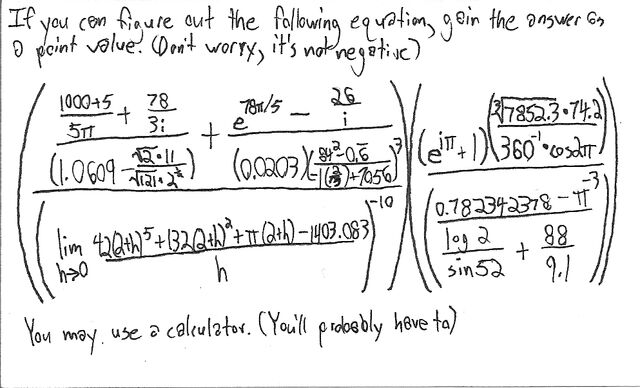 If you can figure out the following equation, gain the answer as
a point value! (Don't worry, it's not negative)
((((1000+5)/(5π) + 78/(3i))/(1.0609 - (√2·11)/(√121·2^½)) + (e^(78π/5) - 26/i)/((0.0203)((84²-0.6)/(-1()+7056))³))/(lim h→0 (42(2+h)⁵+132(2+h)²+π(2+h)-1403.083)/h)⁻¹⁰)(((e^(iπ)+1)((∛7852.3·74.2)/(360⁻¹·cos2π)))/((0.782342378-π⁻³)/((log 2)/(sin52) + 88/9.1)))
You may use a calculator. (You'll probably have to)